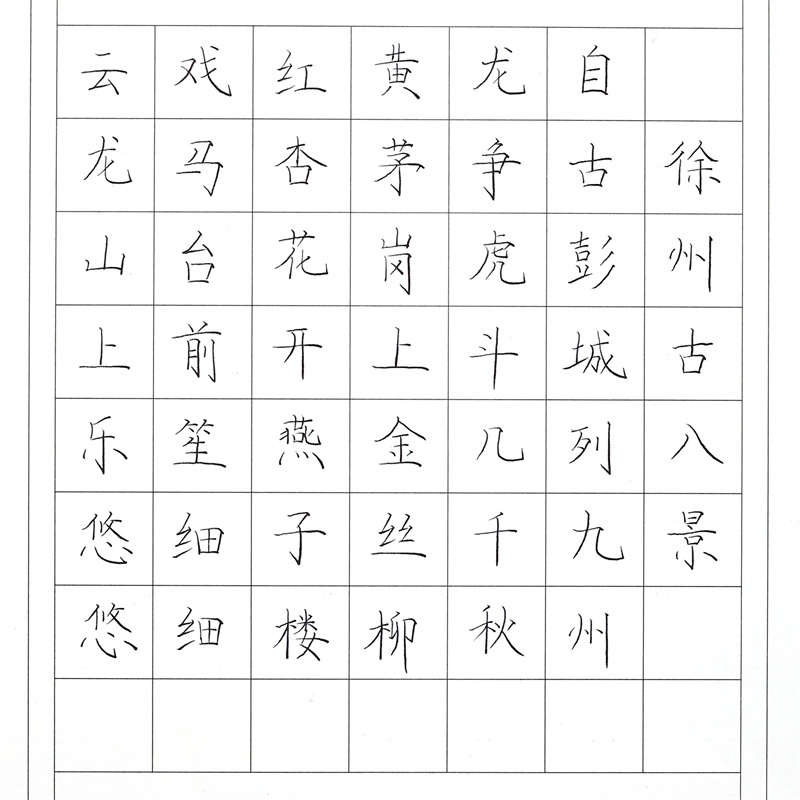 徐州古八景
自古彭城列九州
龙争虎斗几千秋
黄茅岗上金丝柳
红杏花开燕子楼
戏马台前笙细细
云龙山上乐悠悠